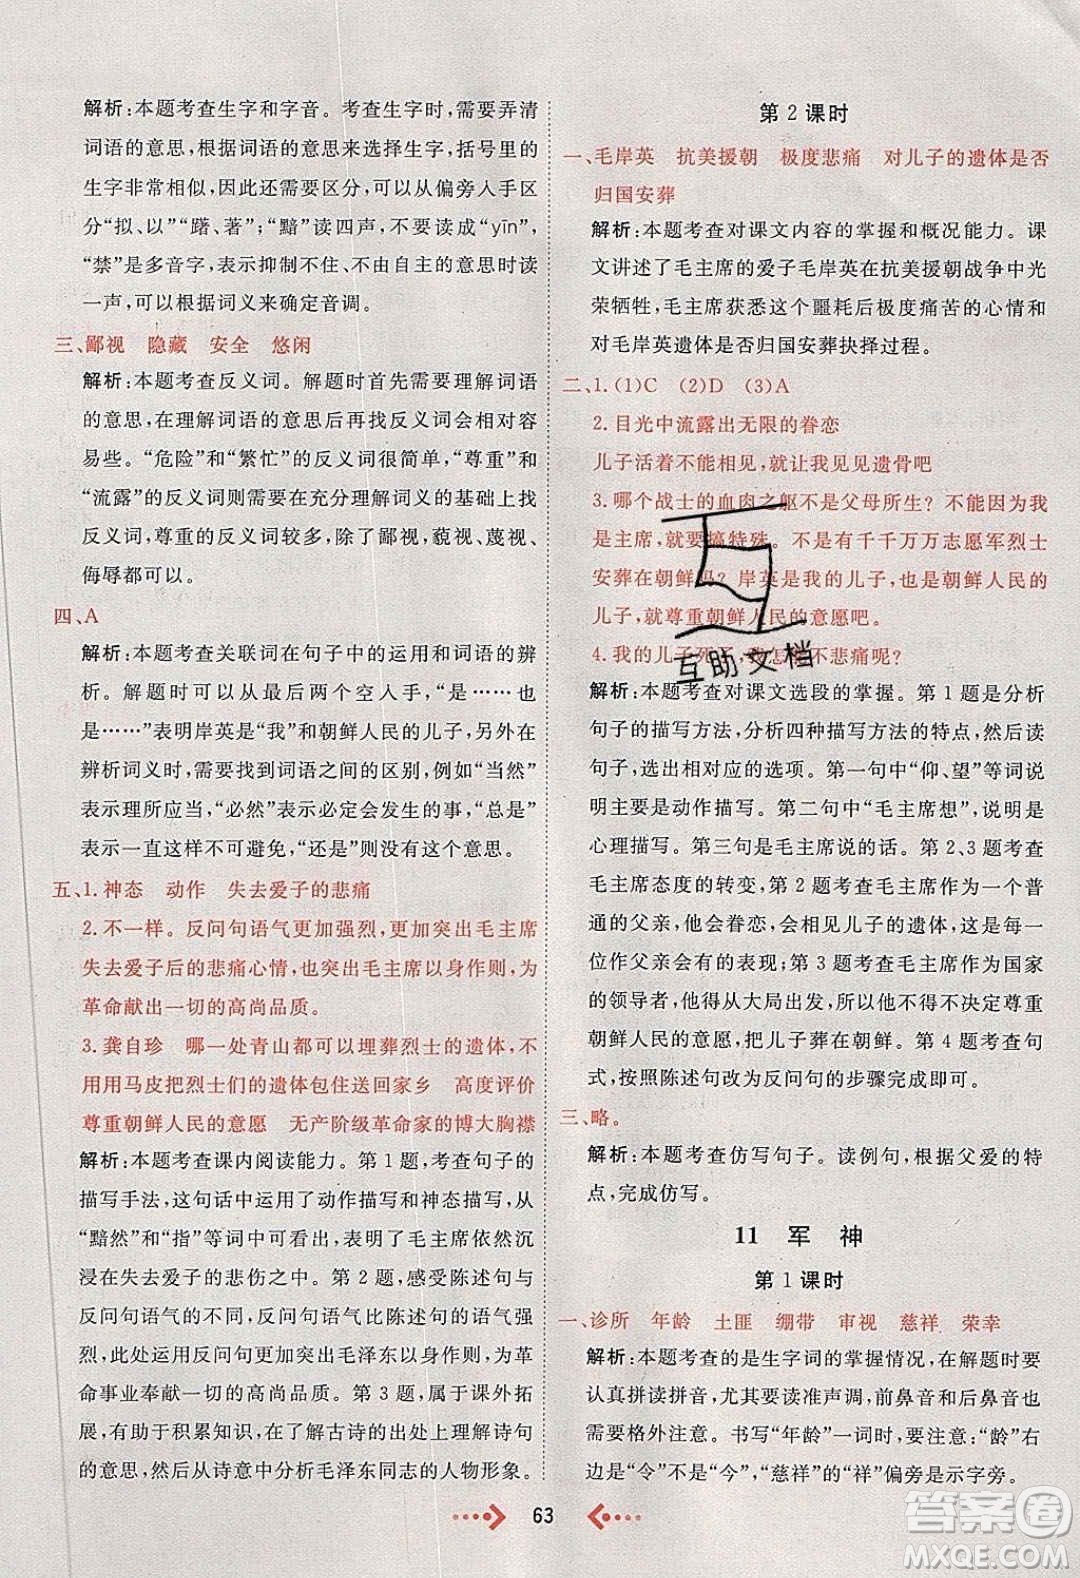 解析:本题考查生字和字音。考查生字时,需要弄清
词语的意思,根据词语的意思来选择生字,括号里的
生字非常相似,因此需要区分,可以从偏旁入手区
分“拟、以”“躇、著”;“黯”读四声,不要读成“yīn”,
“禁”是多音字,表示抑制不住、不由自主的意思时读
一声,可以根据词义来确定音调。
三、鄙视 隐藏 安全 悠闲
解析:本题考查反义词。解题时首先需要理解词语
的意思,在理解词语的意思后再找反义词就比较容
易些。“危险”和“繁忙”的反义词很简单,“尊重”和
“流露”的反义词则需要在充分理解词义的基础上找
反义词,尊重的反义词较多,除了鄙视,藐视、蔑视、
侮辱都可以。
四、A
解析:本题考查关联词在句子中的运用和词语的辨
析。解题时可以从最后两个空入手,“是……也
是……”表明岸英是“我”和朝鲜人民的儿子。另外在
辨析词义时,需要找到词语之间的区别,例如“当然”
表示理所应当,“必然”表示必定会发生的事,“总是”
表示一直这样不可避免,“还是”则没有这个意思。
五、1.神态 动作 失去爱子的悲痛
2.不一样。反问句语气更加强烈,更加突出毛主席
失去爱子后的悲痛心情,也突出毛主席以身作则,为
革命献出一切的高尚品质。
3.龚自珍 哪一处青山都可以埋葬烈士的遗体,不
用用马皮把烈士们的遗体包住送回家乡 高度评价
尊重朝鲜人民的意愿 无产阶级革命家的博大胸襟
解析:本题考查课内阅读能力。第1题,考查句子的
描写手法,这句话中运用了动作描写和神态描写,从
“黯然”和“指”等词中可以看出。毛主席依然沉
浸在失去爱子的悲伤之中。第2题,感受陈述句与
反问句语气的不同,反问句比陈述句的语气强
烈,此处运用反问句更加突出毛泽东失去爱子,为革
命事业奉献一切的高尚品质。第3题,属于课外拓
展,有助于积累知识,在了解古诗的出处上理解诗句
的意思,然后从诗意中分析毛泽东同志的人物形象。
第2课时
一、毛岸英 抗美援朝 极度悲痛 对儿子的遗体是否
归国安葬
解析:本题考查对课文内容的掌握和概况能力。课
文讲述了毛主席的爱子毛岸英在抗美援朝战争中光
荣牺牲,毛主席获悉这个噩耗后极度痛苦的心情和
对毛岸英遗体是否归国安葬抉择过程。
二、1.(1)C (2)D (3)A
2.目光中流露出无限的眷恋
儿子活着不能相见,就让我见见遗骨吧
3.哪个战士的血肉之躯不是父母所生?不能因为我
是主席,就要搞特殊。不是有千千万万志愿军烈士
安葬在朝鲜吗?岸英是我的儿子,也是朝鲜人民的
儿子,就尊重朝鲜人民的意愿吧。
4.我的儿子死了,我怎能不悲痛呢?
解析:本题考查对课文选段的掌握。第1题是分析
句子的描写方法,分析四种描写方法的特点,然后读
句子,选出相对应的选项。第一句中“仰、望”等词说
明主要是动作描写。第二句中“毛主席想”,说明是
心理描写。第三句是毛主席说的话。第2、3题考查
毛主席态度的转变,第2题考查毛主席作为一个普
通的父亲,他会眷恋,会想相见儿子的遗体,这是每一
位作父亲的表现;第3题考查毛主席作为国家
的领导者,他得从大局出发,所以他不得不决定尊重
朝鲜人民的意愿,把儿子葬在朝鲜。第4题考查句
式,按照陈述句改为反问句的步骤完成即可。
三、略。
解析:本题考查仿写句子。读例句,根据父爱的特
点,完成仿写。
11 军 神
第1课时
一、诊所 年龄 土匪 绷带 审视 慈祥 荣幸
解析:本题考查的是生字词的掌握情况,在解题时要
认真拼读拼音,尤其要读准声调,前鼻音和后鼻音的
韵母要格外注意。书写“年龄”一词时,要注意“龄”右
边是“令”不是“今”,“慈祥”的“祥”偏旁是示字旁。
互助文档
63
答案圈
MXQE.COM